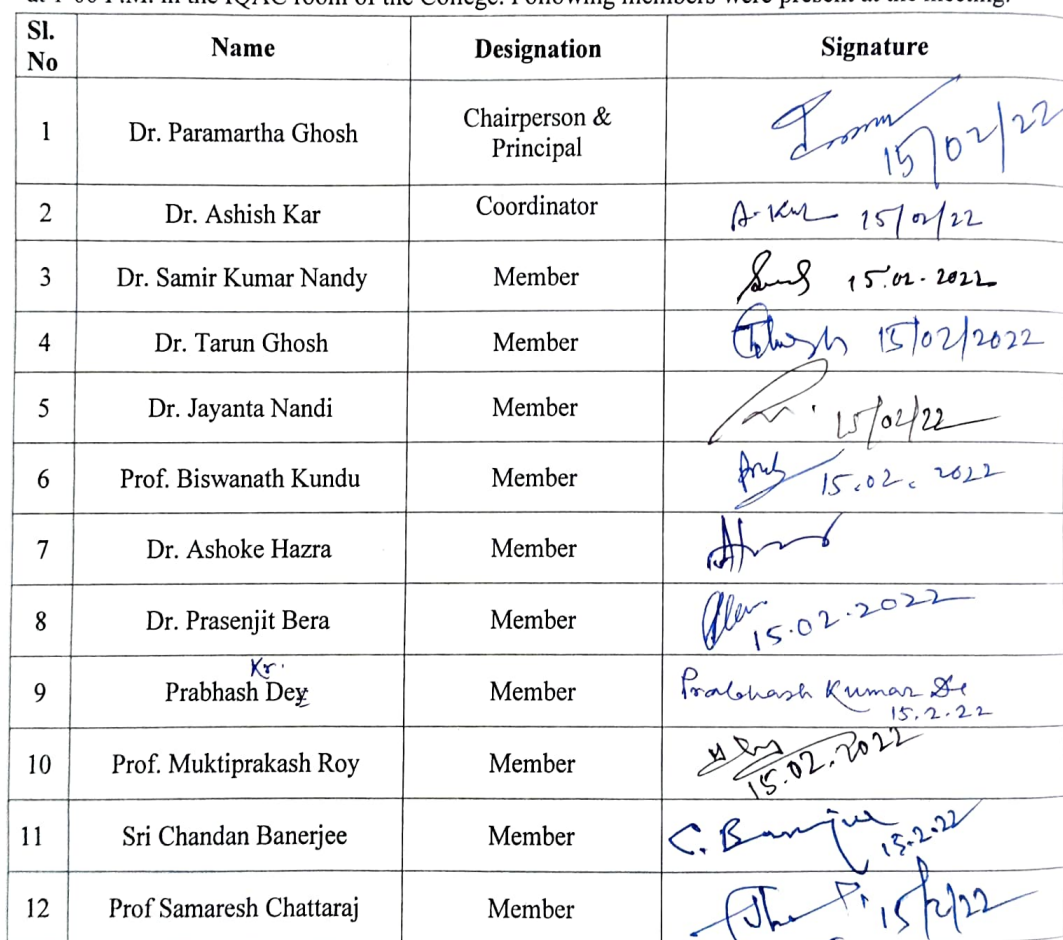 in the IQAC room of the College. Following members were present at the meeting.
Sl. No Name Designation Signature
1 Dr. Paramartha Ghosh Chairperson & Principal 15/02/22
2 Dr. Ashish Kar Coordinator A. Kar 15/02/22
3 Dr. Samir Kumar Nandy Member 15.02.2022
4 Dr. Tarun Ghosh Member TGhosh 15/02/2022
5 Dr. Jayanta Nandi Member 15/02/22
6 Prof. Biswanath Kundu Member 15.02.2022
7 Dr. Ashoke Hazra Member
8 Dr. Prasenjit Bera Member 15.02.2022
9 Prabhash Kr. Dey Member Prabhash Kumar De
15.2.22
10 Prof. Muktiprakash Roy Member 15.02.2022
11 Sri Chandan Banerjee Member C. Banerjee 15.2.22
12 Prof Samaresh Chattaraj Member 15/2/22